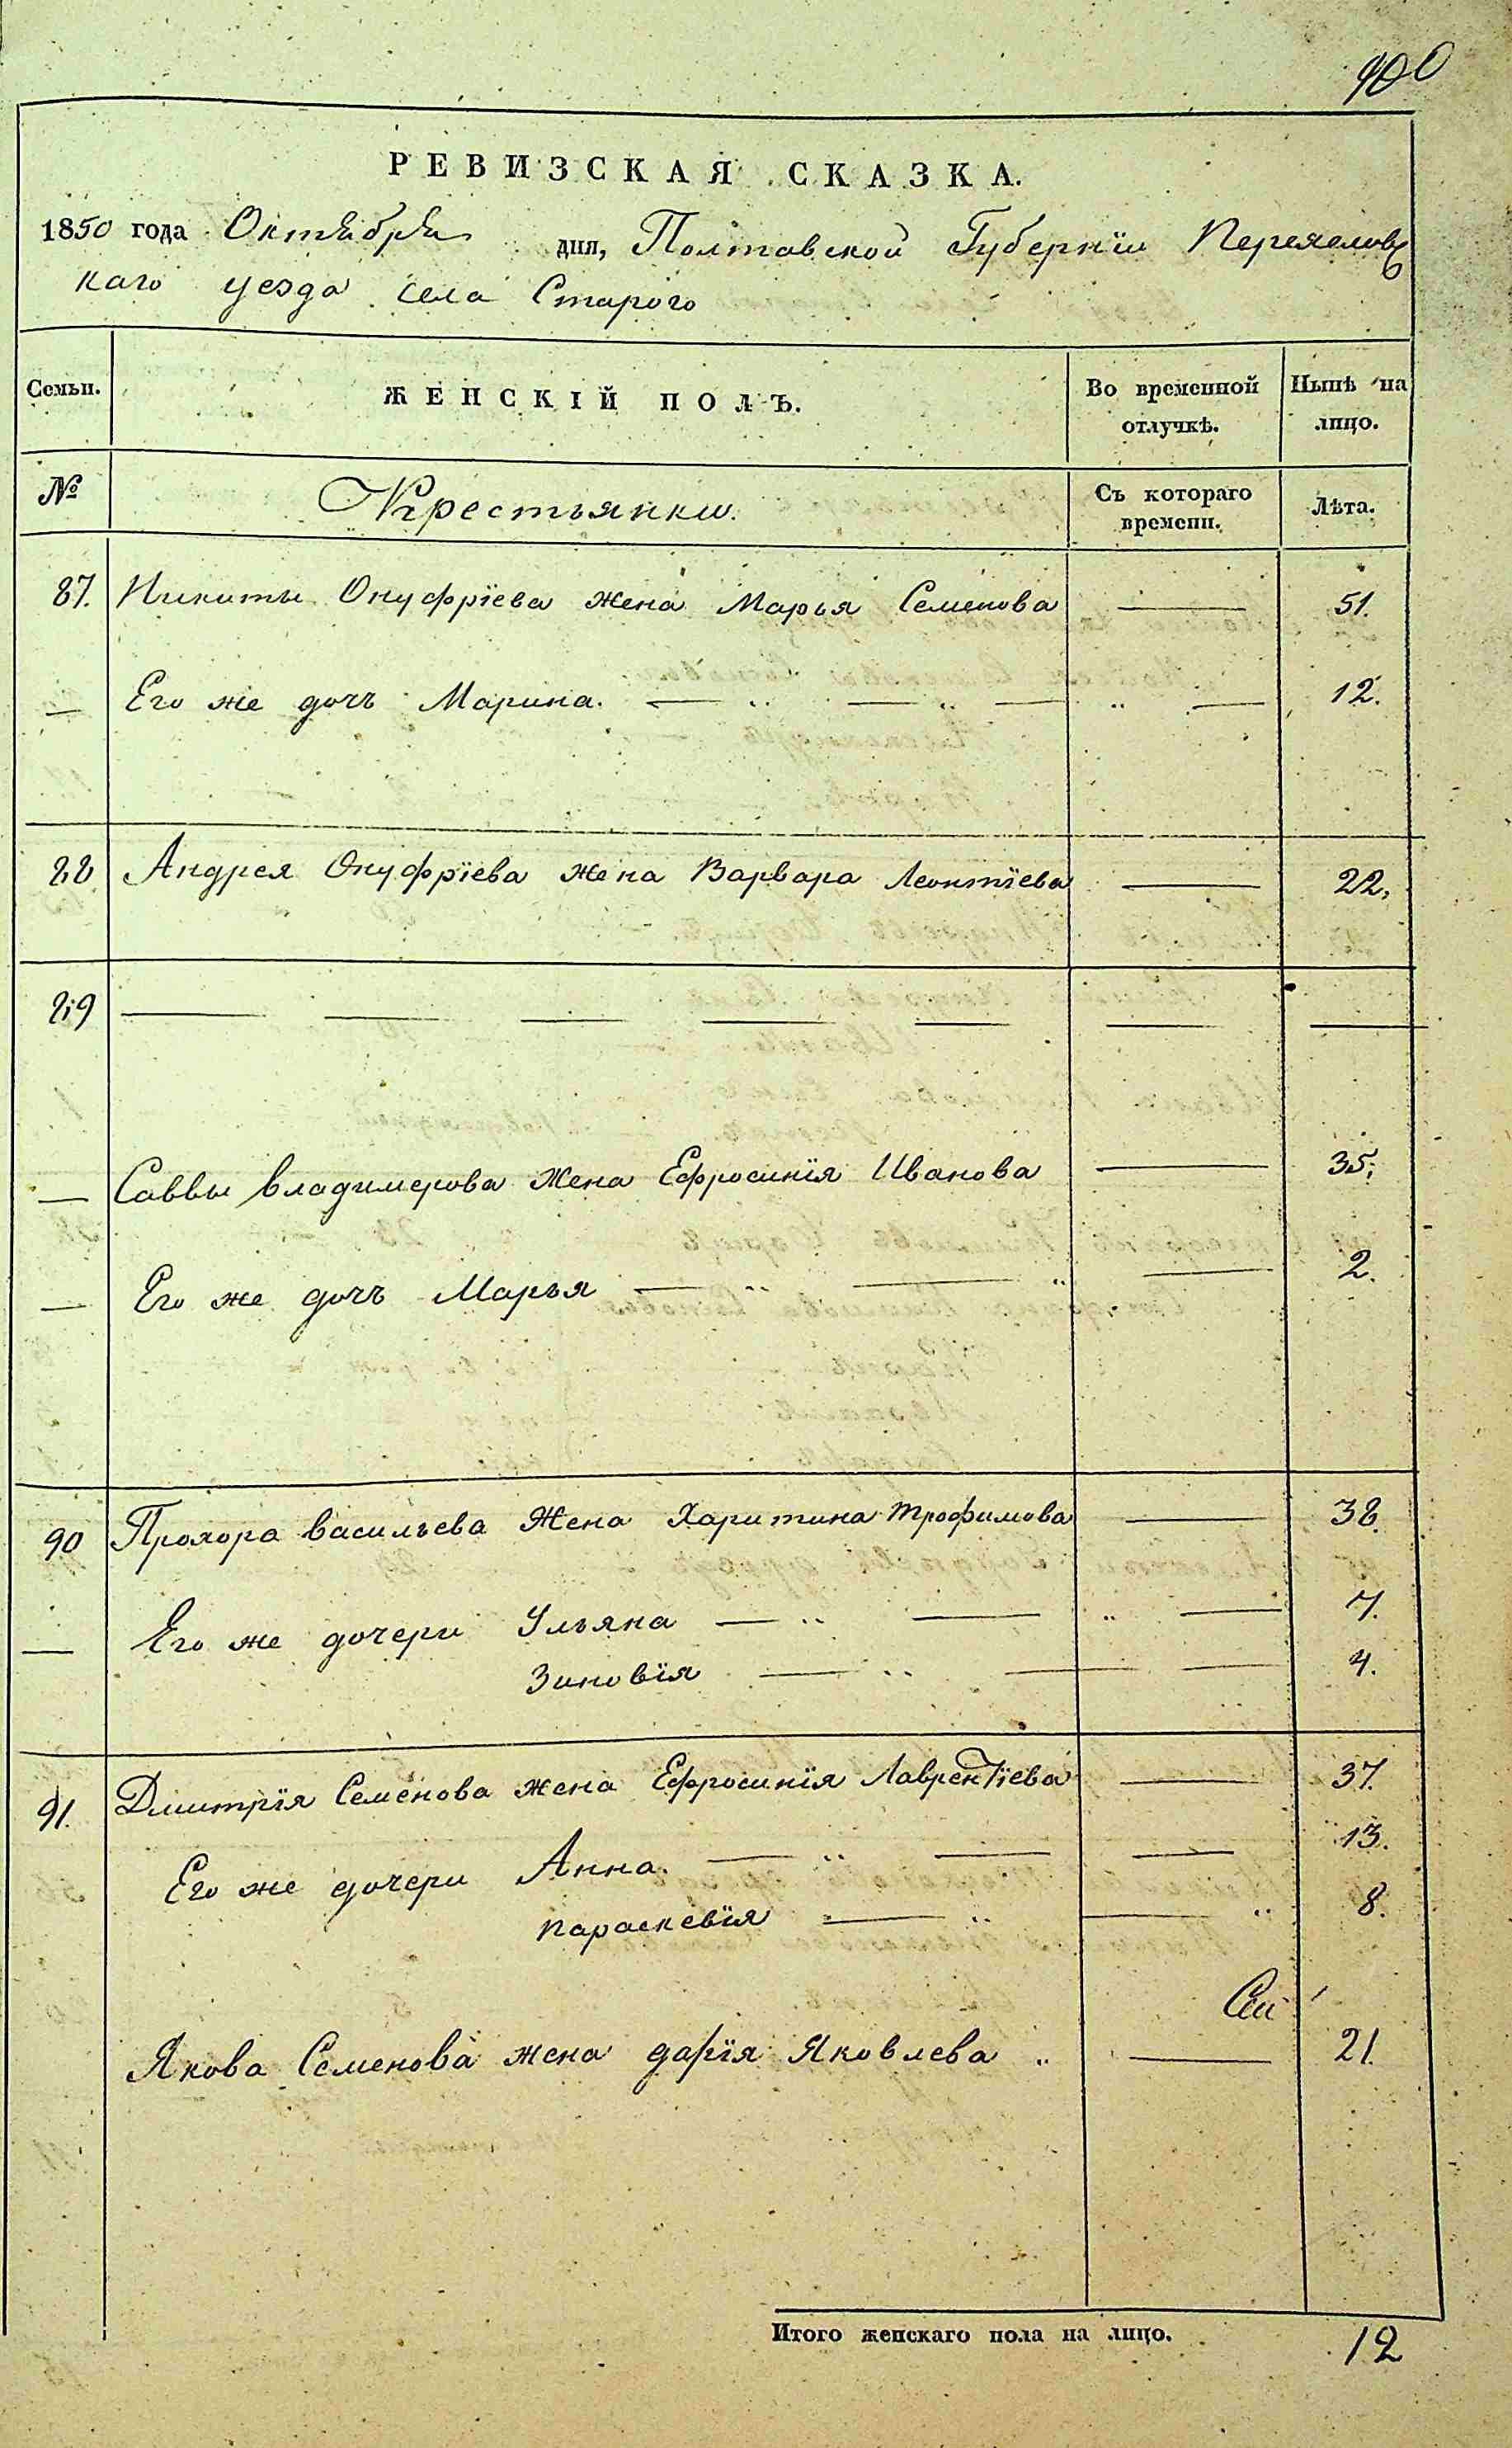 100
РЕВИЗСКАЯ СКАЗКА.
1850 года Октября дня, Полтавской Губернїи Переяславс
каго уезда села Старого
Семьи. ЖЕНСКІЙ ПОЛЪ. Во временной отлучкѣ. Нынѣ на лицо.
№ Крестьянки. Съ котораго времени. Лѣта.
87. Никиты Онуфрїева жена Марья Семенова — 51.
— Его же дочь Марина. — „ — „ — „ — 12.
88 Андрея Онуфрїева жена Варвара Леонтїева — 22,
89 — — — — — — —
— Саввы Владимерова жена Ефросинїя Иванова — 35,
— Его же дочь Марья — „ — „ — 2.
90 Прохора Васильева жена Харитина Трофимова — 38.
— Его же дочери Ульяна — „ — „ — 7.
Зиновїя — „ — — 4.
91. Дмитрїя Семенова жена Ефросинїя Лаврентїева — 37.
Его же дочери Анна. — „ — — 13.
Параскевїя — „ — „ 8.
Якова Семенова жена дарїя Яковлева „ — 21.
Итого женскаго пола на лицо. 12